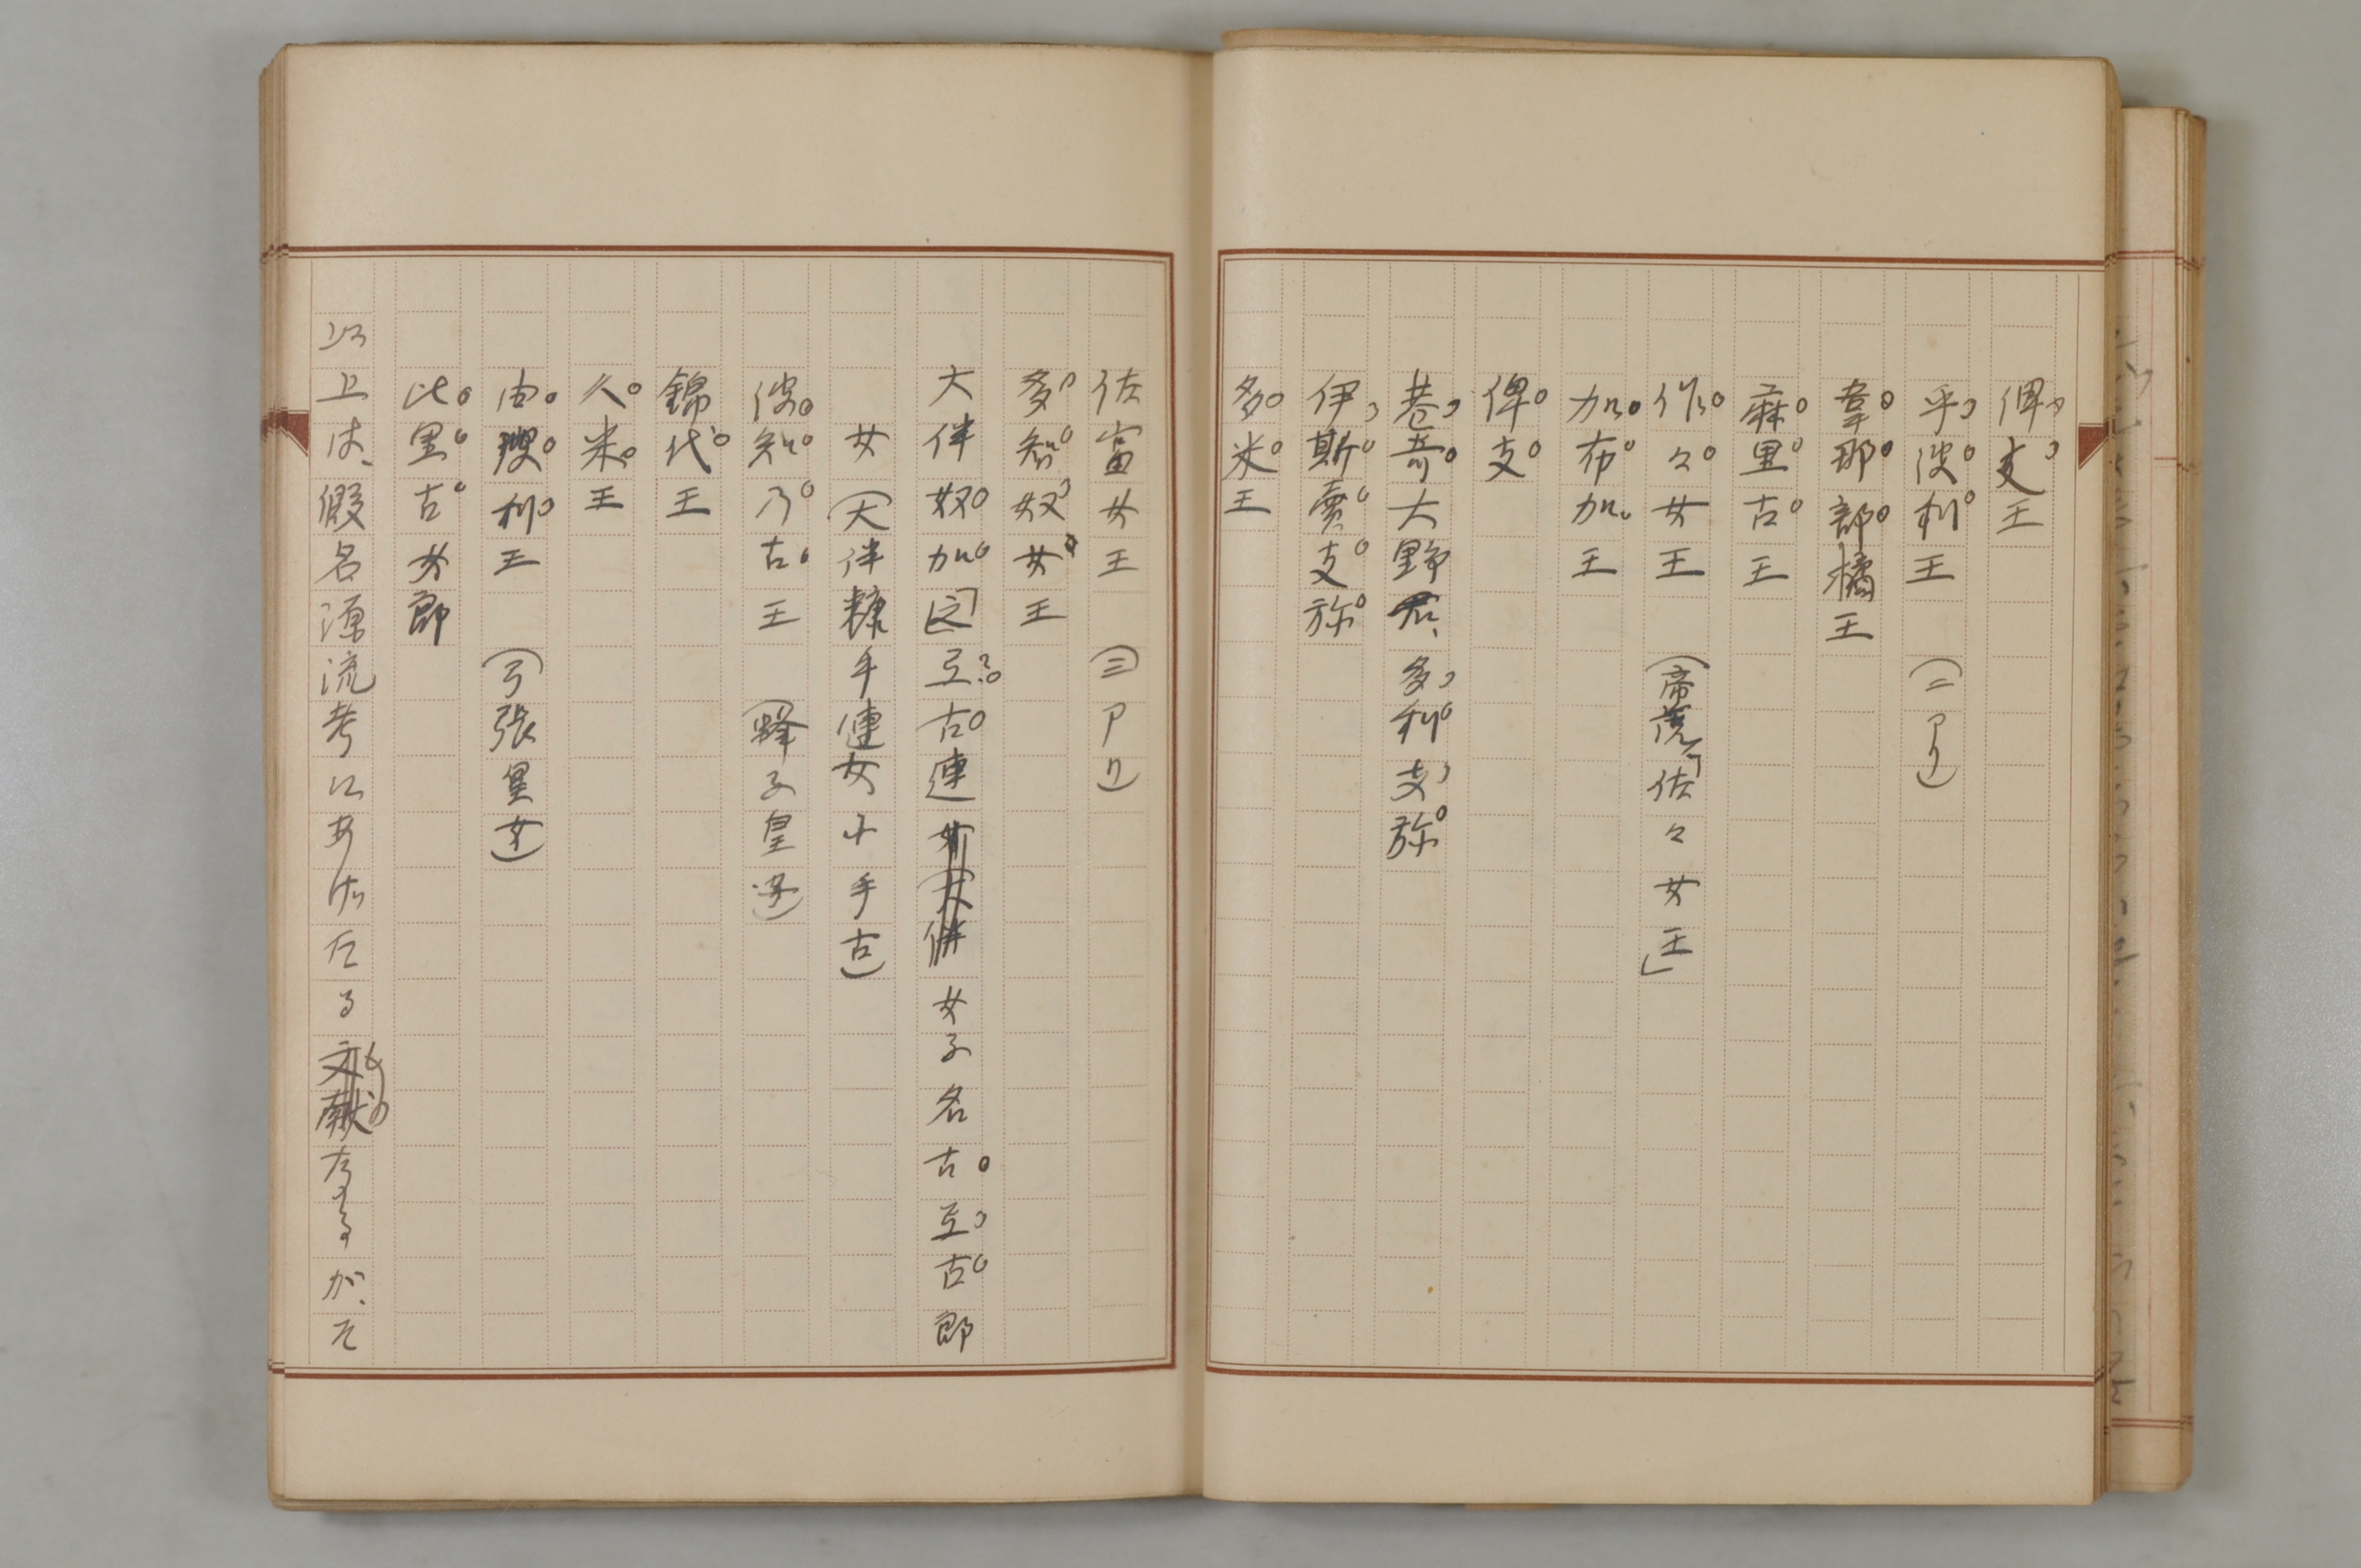 俾支王
乎波利王　（二アリ）
韋那部橘王
麻里古王
作々女王　（帝説「佐々女王」
加布加王
俾支
巷奇大野君、多利支弥
伊斯賣支弥
多米王
佐富女王　（三アリ）
多知奴女王
大伴奴加之互古連女子名古互古郎
女（大伴糠手連女小手古）
波知乃古王　（蜂子皇子）
錦代王
久米王
由瓊利王　（弓張皇女）
比里古女郎
以上は、假名源流考にあげたるものなるが、そ